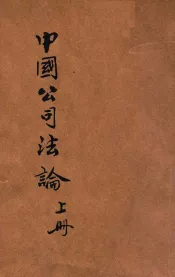 中國公司法論
上册